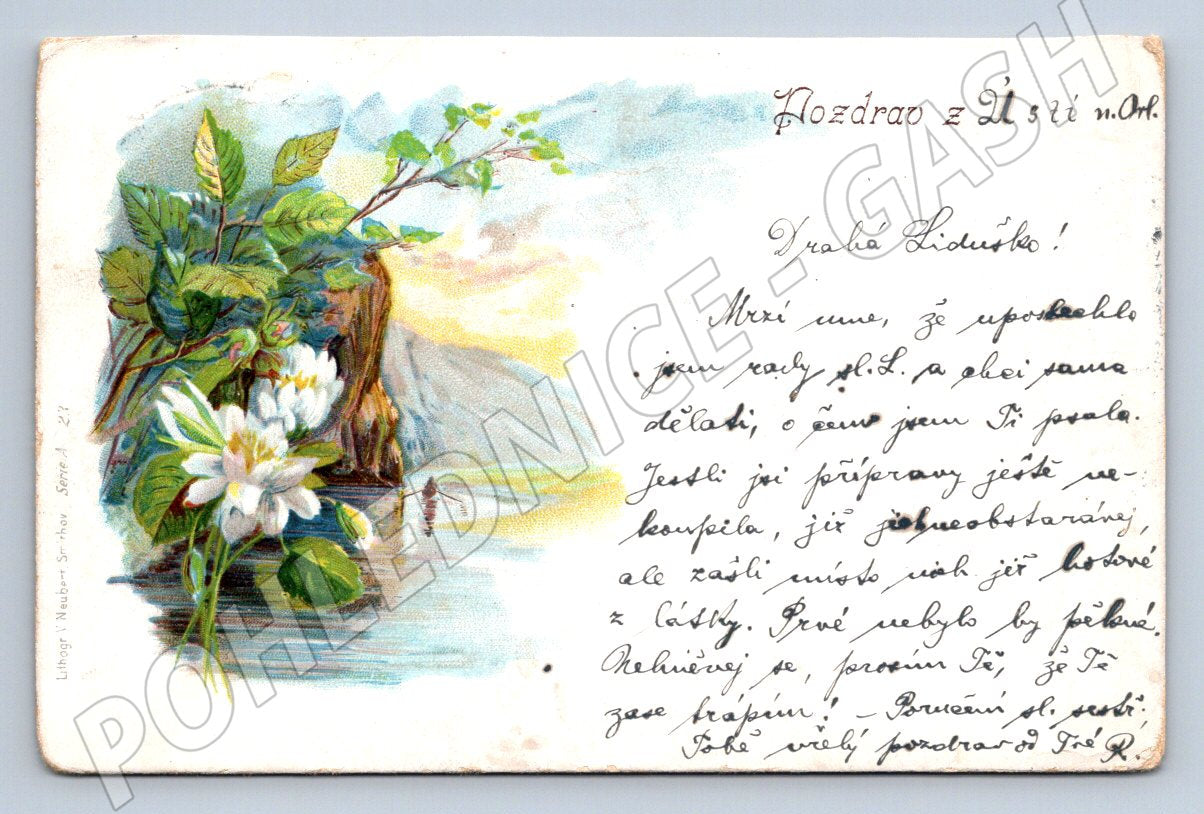 Pozdrav z Ústí n. Orl.
Drahá Liduško!
Mrzí mne, že uposlechla
jsem rady sl. L. a chci sama
dělati, o čem jsem Ti psala.
Jestli jsi přípravy ještě ne-
koupila, již jich neobstarávej,
ale zašli místo nich již hotové
z látky. Prvé nebylo by pěkné.
Nehněvej se, prosím Tě, že Tě
zase trápím! – Poručení sl. sestř.
Tobě vřelý pozdrav od Tvé R.
Lithogr. V. Neubert Smíchov Serie A 27
POHLEDNICE - GASH